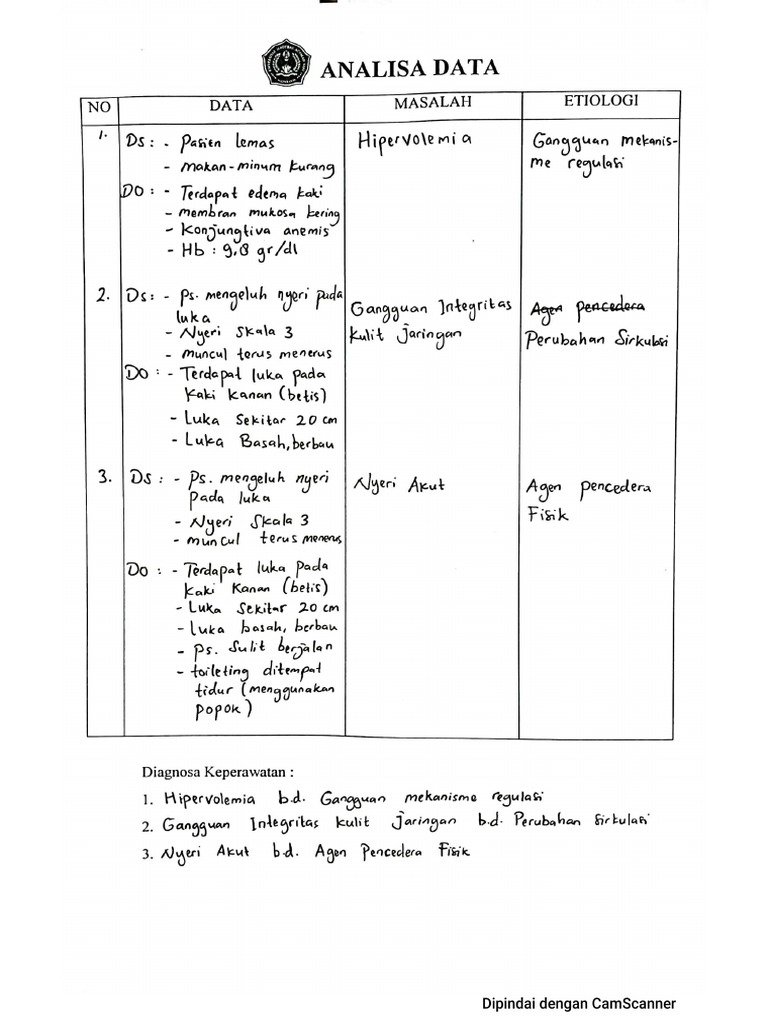 ANALISA DATA
NO DATA MASALAH ETIOLOGI
1. Ds : - Pasien lemas
- makan-minum kurang
DO : - Terdapat edema kaki
- membran mukosa kering
- Konjungtiva anemis
- Hb : 9,8 gr/dl
Hipervolemia
Gangguan mekanis-
me regulasi
2. Ds : - Ps. mengeluh nyeri pada
luka
- Nyeri Skala 3
- muncul terus menerus
DO : - Terdapat luka pada
kaki kanan (betis)
- Luka Sekitar 20 cm
- Luka Basah, berbau
Gangguan Integritas
kulit jaringan
Agen pencedera
Perubahan Sirkulasi
3. DS : - Ps. mengeluh nyeri
pada luka
- Nyeri Skala 3
- muncul terus menerus
DO : - Terdapat luka pada
kaki kanan (betis)
- Luka Sekitar 20 cm
- luka basah, berbau
- Ps. Sulit berjalan
- toileting ditempat
tidur (menggunakan
popok)
Nyeri Akut
Agen pencedera
Fisik
Diagnosa Keperawatan :
1. Hipervolemia b.d. Gangguan mekanisme regulasi
2. Gangguan Integritas kulit jaringan b.d. Perubahan Sirkulasi
3. Nyeri Akut b.d. Agen Pencedera Fisik
Dipindai dengan CamScanner